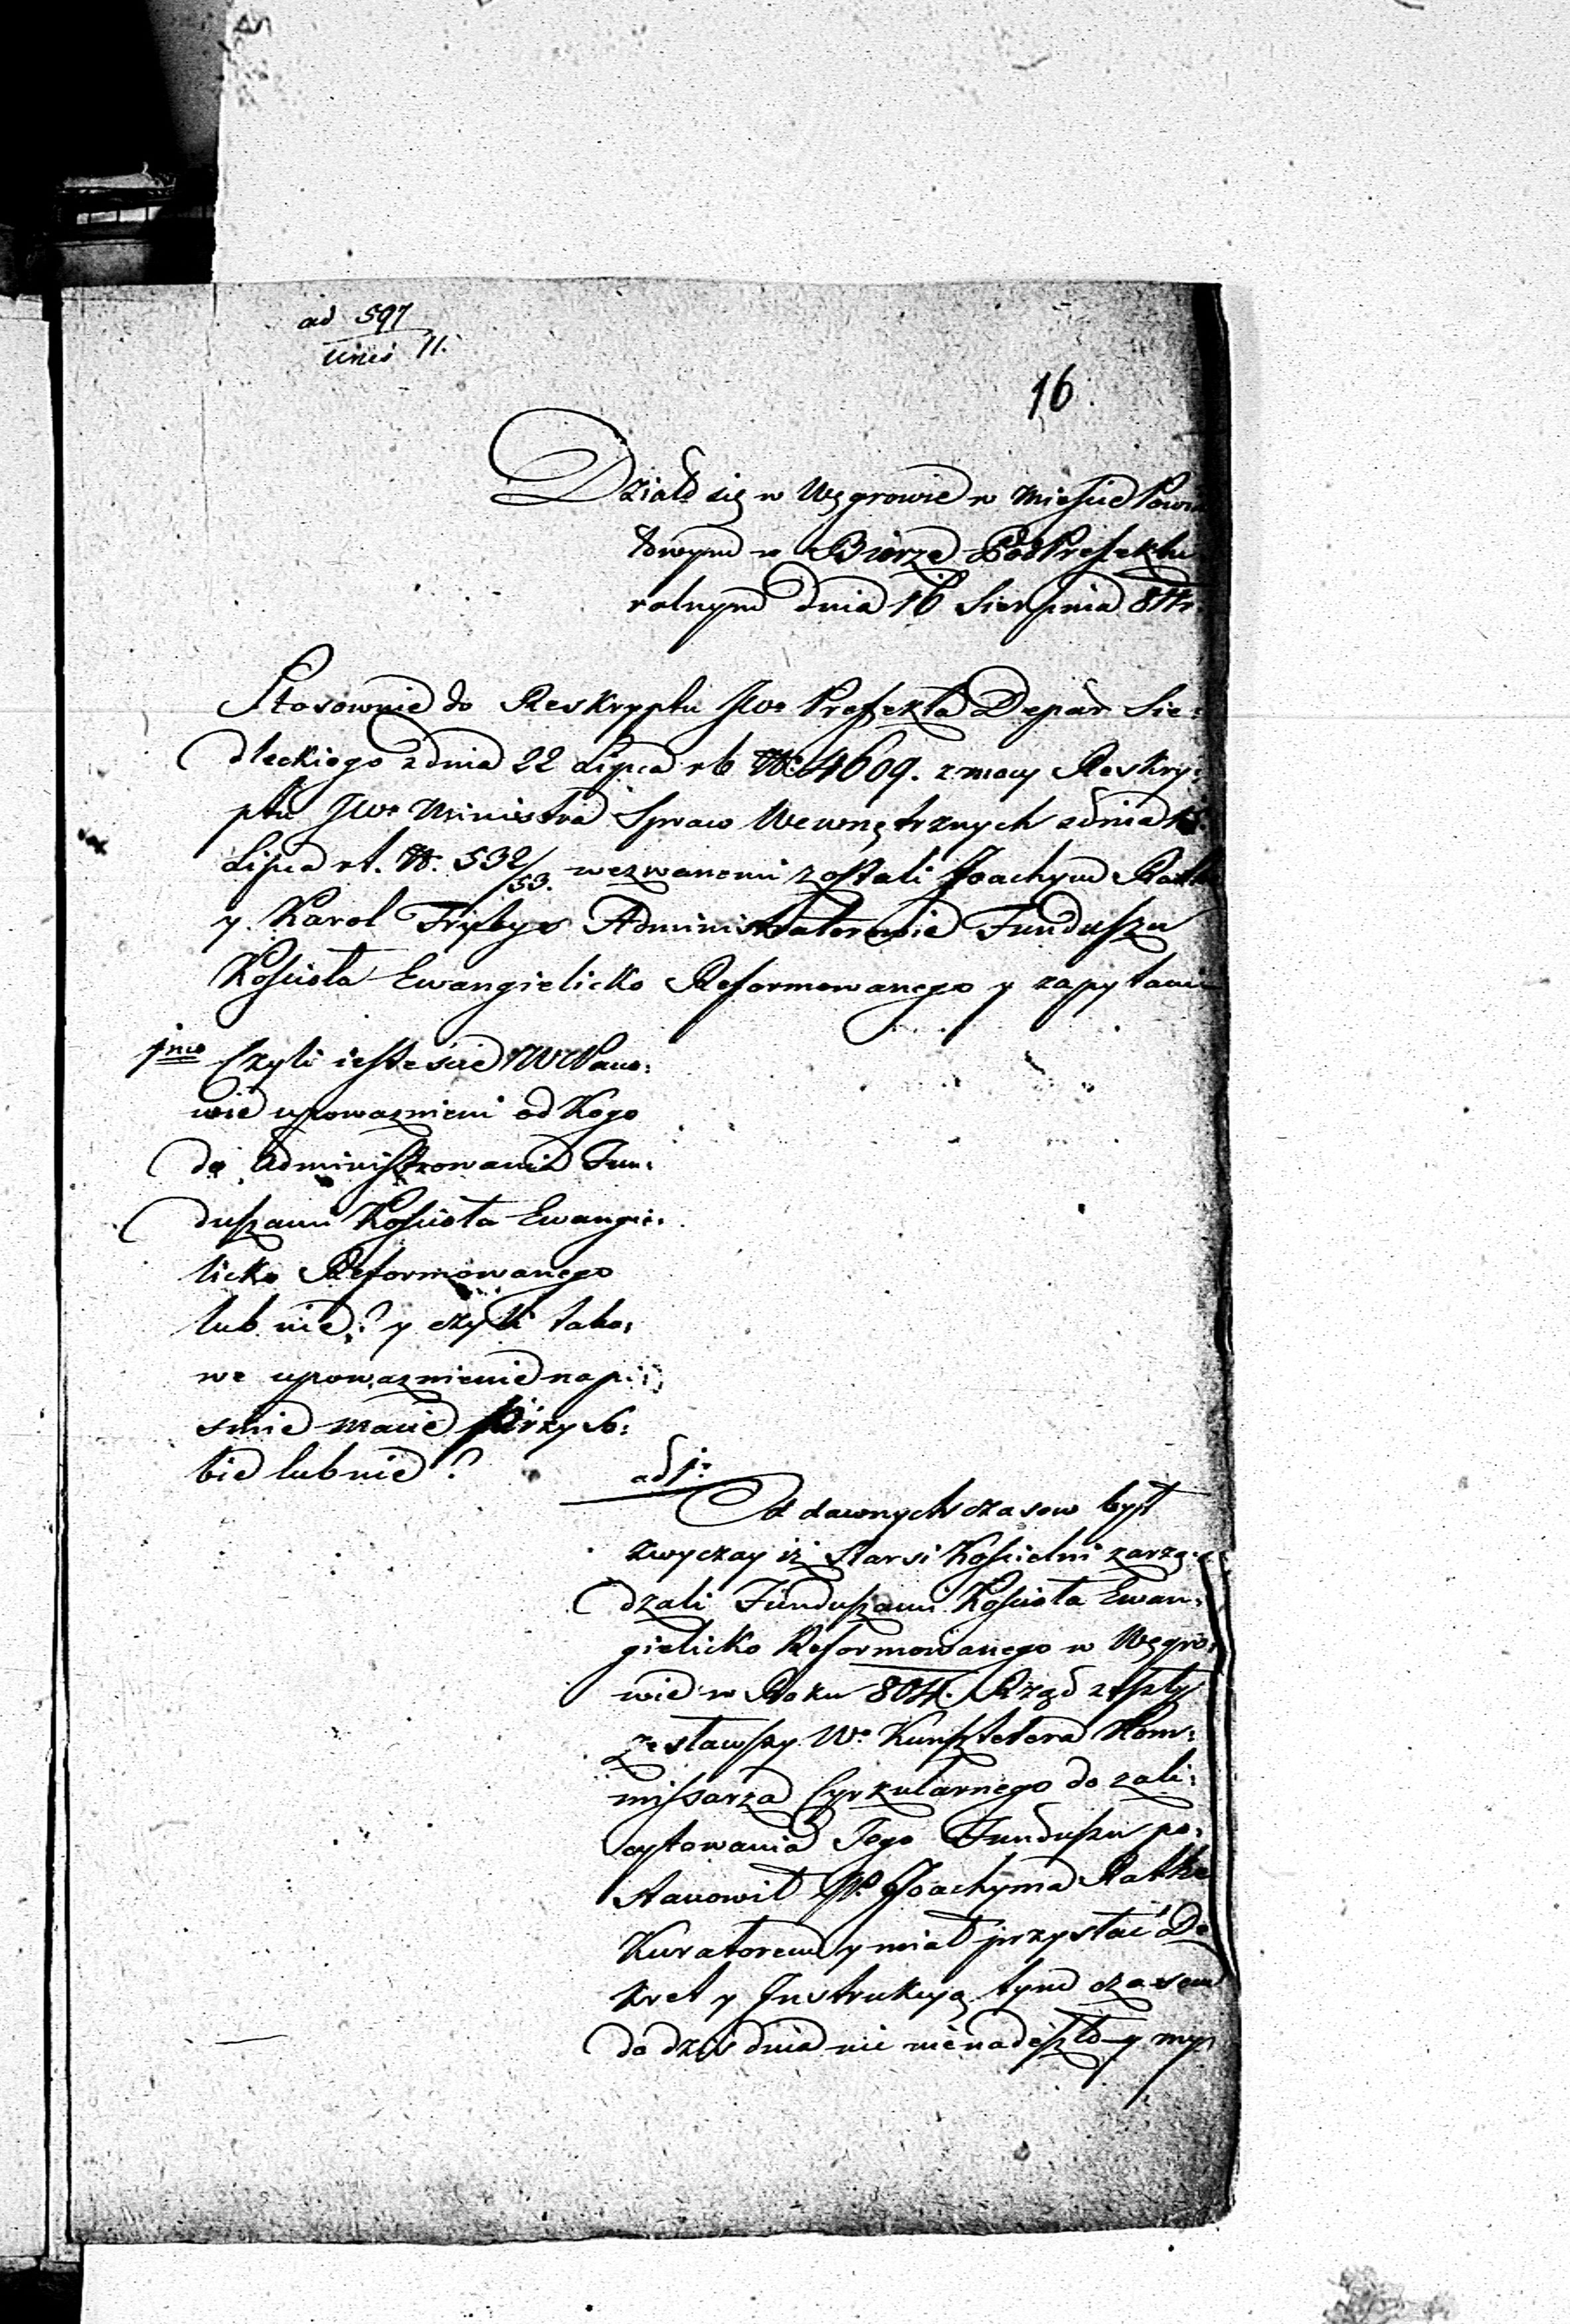 ad 597
11.
16
Działo się w Węgrowie w Mieście Powia
towym w Biórze PodPrefektu
ralnym dnia 16 Sierpnia 811r
Stosownie do Reskryptu JWo Prefekta Depar Sie:
dleckiego z dnia 22 Lipca rb No 4609. z mocy Reskry:
ptu JWo Ministra Spraw Wewnętrznych z dnia
Lipca rb. No. 532/53. wezwanemi zostali Joachym Rathe
y Karol Administratorowie Funduszu
Kościoła Ewangielicko Reformowanego y zapytani
1mo Czyli iesteście WWPano:
wie upoważnieni od Kogo
do Administrowania Fun:
duszami Kościoła Ewangie:
licko Reformowanego
lub nie? y czyli tako:
we upoważnienie na pi:
śmie macie przy so:
bie lub nie?
ad 1o
Od dawnych czasow był
zwyczay iż Starsi Kościelni zarzą:
dzali Funduszami Kościoła Ewan:
gielicko Reformowanego w Węgro:
wie w Roku 804. Rząd zeszły
zesławszy Wo Kunsztetera Kom:
missarza Cyrkularnego do zali:
cytowania Tego Funduszu po:
stanowił P. Joachyma Rathe
Kuratorem y miał przysłać De
kret y Instrukcyą tym czasem
do dziś dnia nic nie nadeszło y my